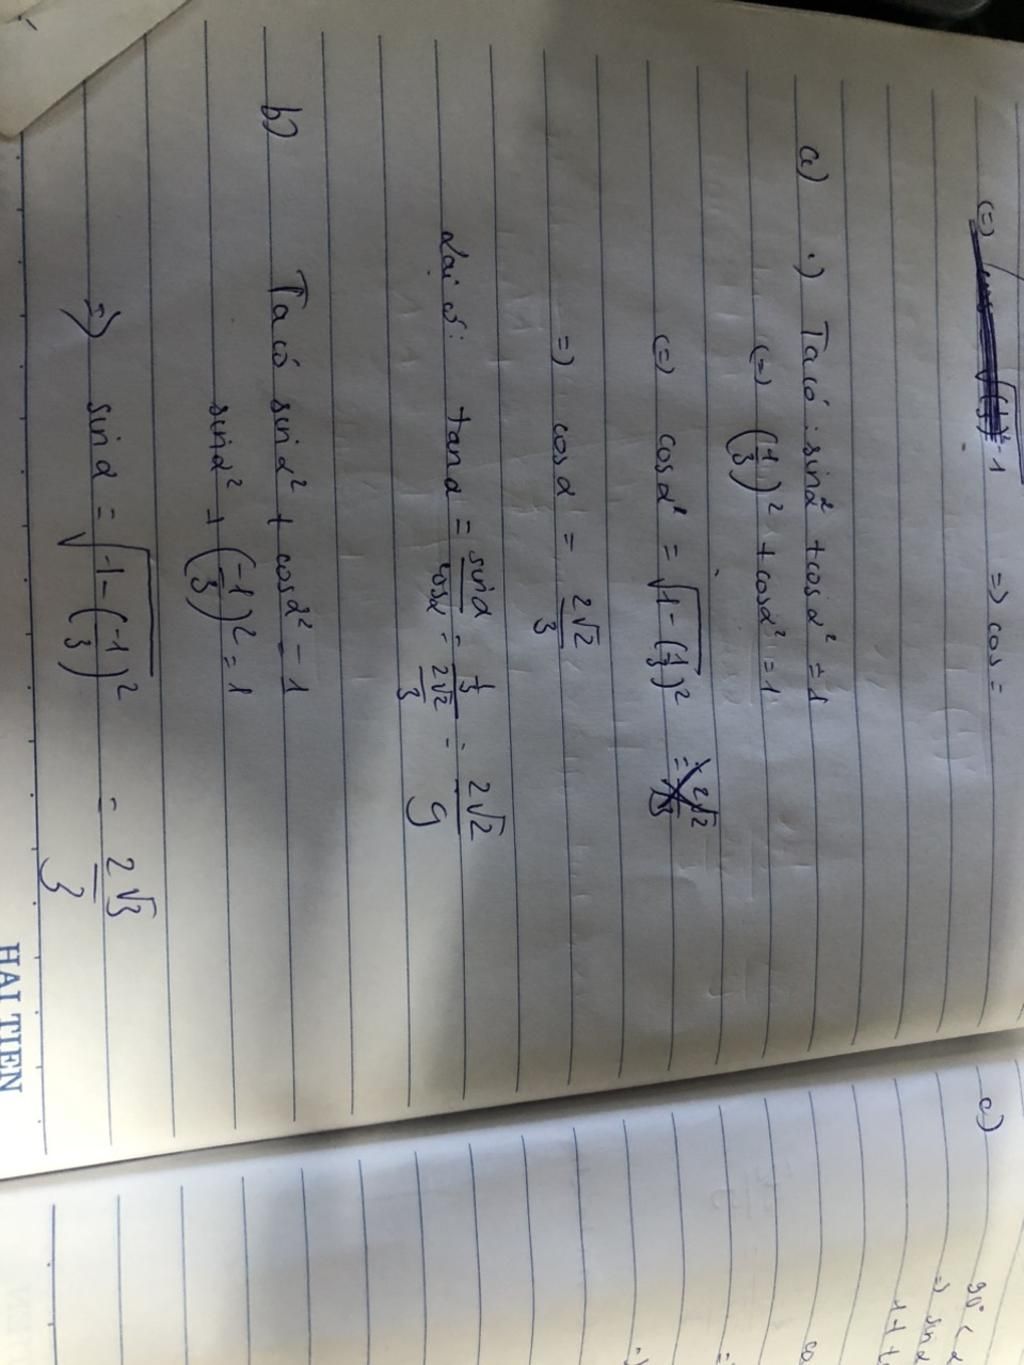 (=) √(1/3)² - 1 => cos =
a) .) Ta có : sinα² + cosα² = 1
(=) (1/3)² + cosα² = 1
(=) cosα² = √1-(1/3)² = 2√2/3
=> cosα = 2√2/3
Lại có : tanα = sinα/cosα = 1/3/2√2/3 = 2√2/9
b) Ta có sinα² + cosα² = 1
sinα² + (-1/3)² = 1
=> sinα = √1-(-1/3)² = 2√3/3
HẢI TIẾN
c) 90° < α
=> sinα
1 +